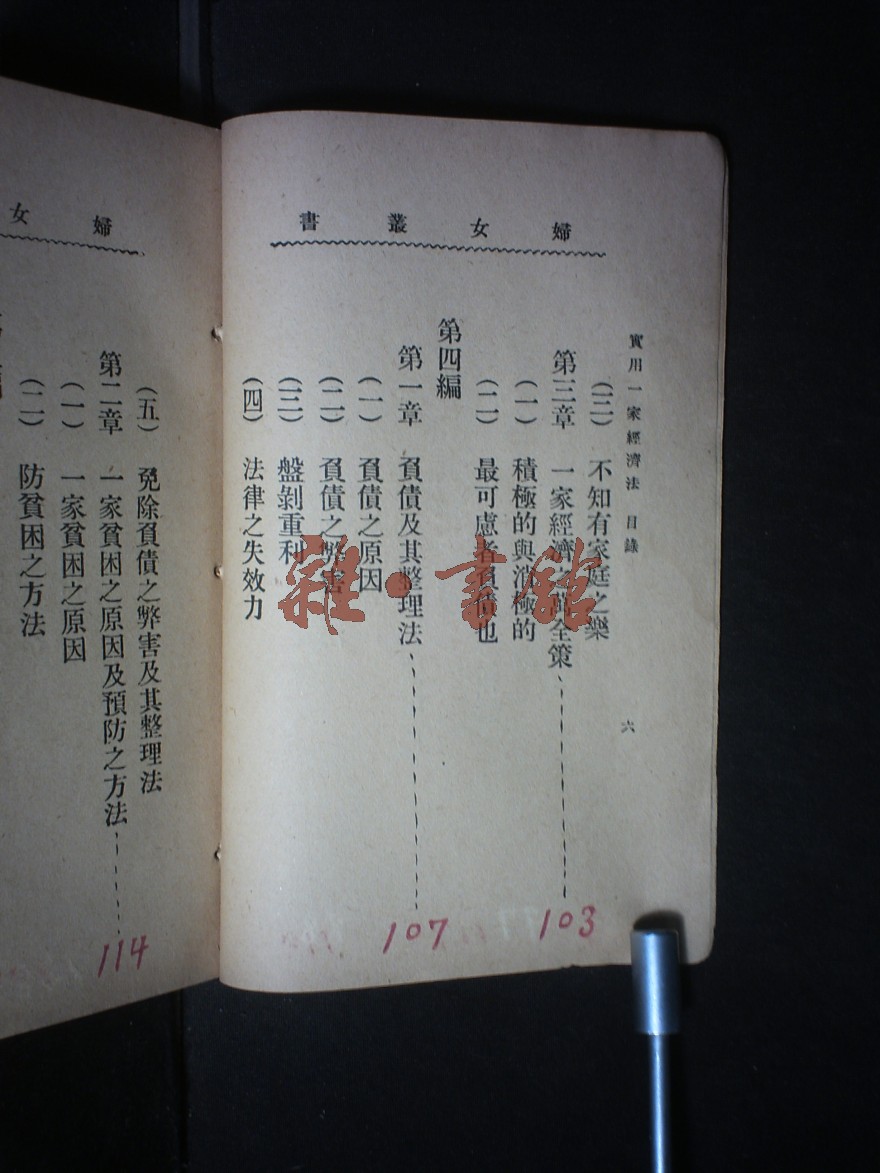 婦女叢書
實用一家經濟法 目錄 六
(三) 不知有家庭之樂
第三章 一家經濟之萬全策 103
(一) 積極的與消極的
(二) 最可慮者負債也
第四編
第一章 負債及其整理法 107
(一) 負債之原因
(二) 負債之弊害
(三) 盤剝重利
(四) 法律之失效力
婦女
(五) 免除負債之弊害及其整理法
第二章 一家貧困之原因及預防之方法 114
(一) 一家貧困之原因
(二) 防貧困之方法
雜·書館